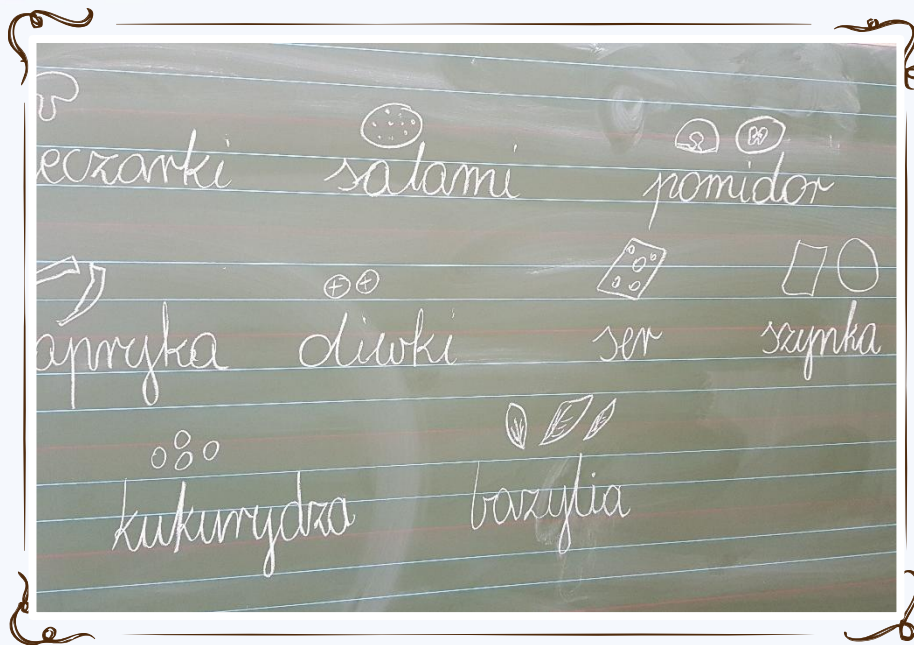 eczarki salami pomidor
apryka oliwki ser szynka
kukurydza bazylia